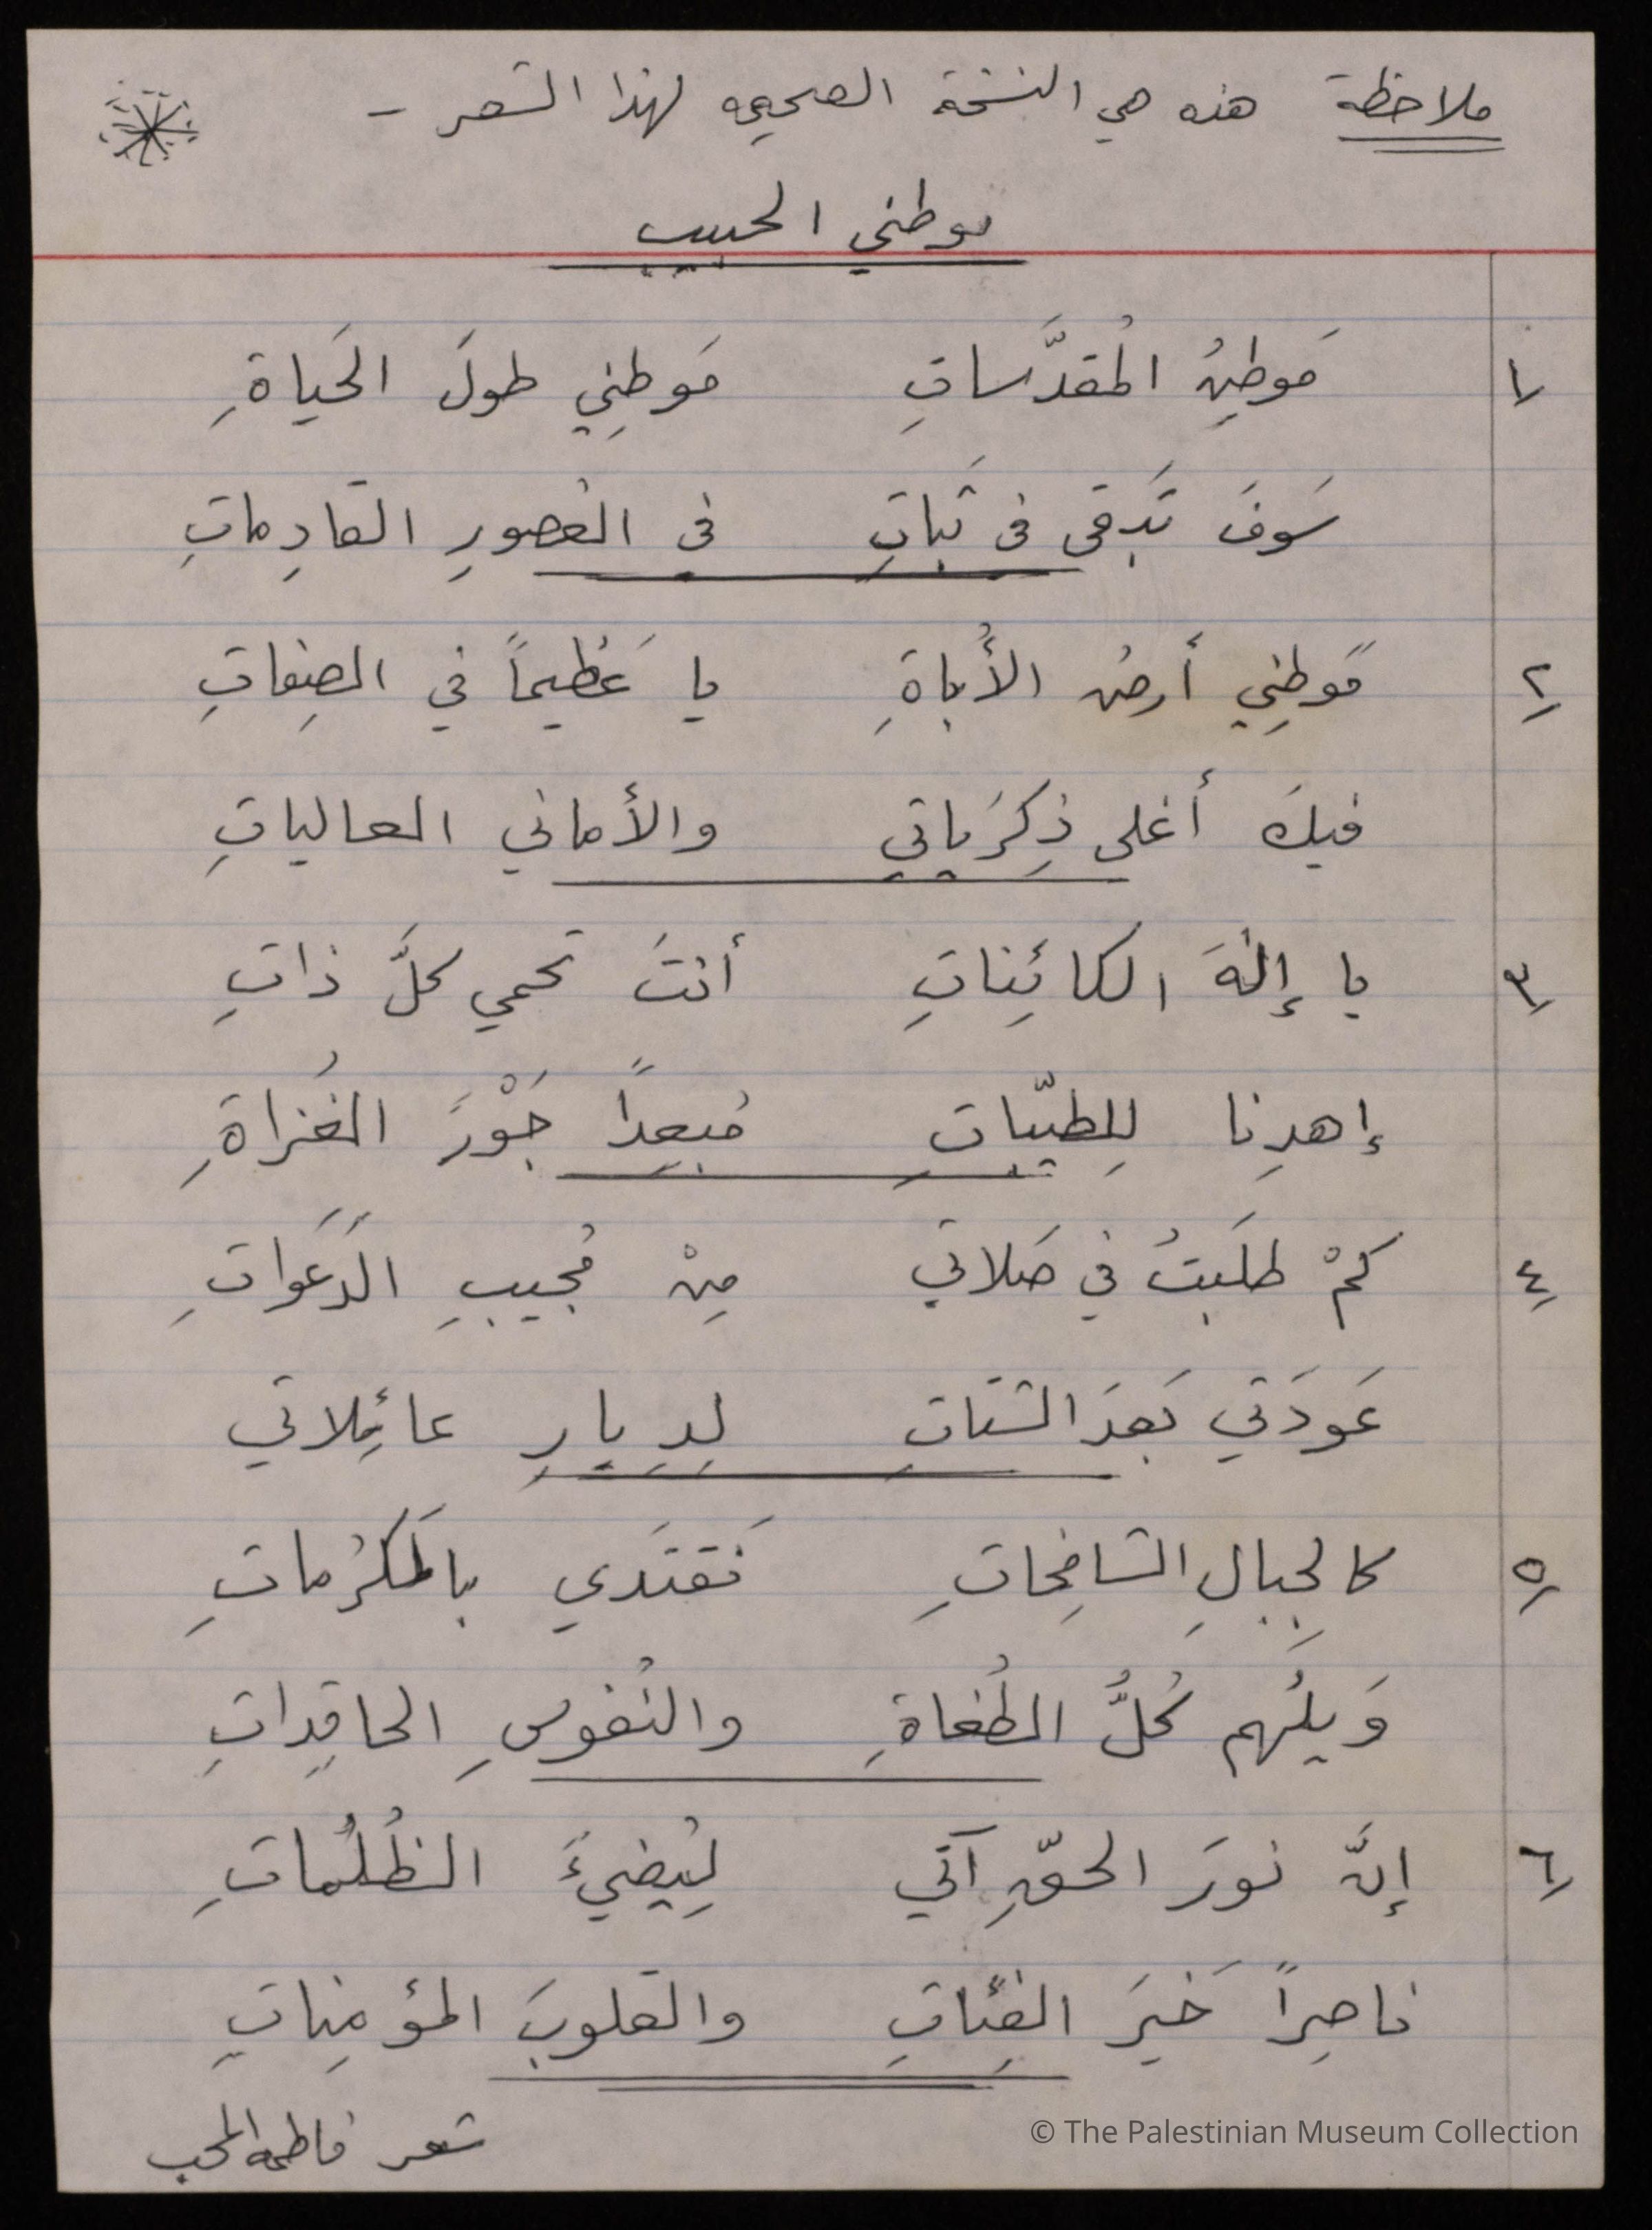 ملاحظة هذه هي النسخة الصحيحه لهذا الشعر -
موطني الحبيب
١ مَوطِنُ المُقدَّساتِ مَوطِني طولَ الحَياةِ
سَوفَ تَبقى في ثَباتِ في العُصورِ القادِماتِ
٢ مَوطِني أرضُ الأُباةِ يا عَظيماً في الصِفاتِ
فيكَ أغلى ذِكرَياتي والأماني العالياتِ
٣ يا إلٰهَ الكائِناتِ أنتَ تحمي كلَّ ذاتِ
إهدِنا لِلطيّباتِ مُبعِداً جَوْرَ الغُزاةِ
٤ كمْ طلَبتُ في صَلاتي مِنْ مُجيبِ الدَعَواتِ
عَودَتي بَعدَ الشَتاتِ لِدِيارِ عائِلاتي
٥ كالجِبالِ الشامِخاتِ نَقتَدي بالمَكرُماتِ
وَيلُهم كُلُّ الطُغاةِ والنُفوسِ الحاقِداتِ
٦ إنَّ نورَ الحقِّ آتي لِيُضيءَ الظُلُماتِ
ناصِراً خَيرَ الفِئاتِ والقلوبَ المؤمِناتِ
شعر فاطمه المحب
© The Palestinian Museum Collection